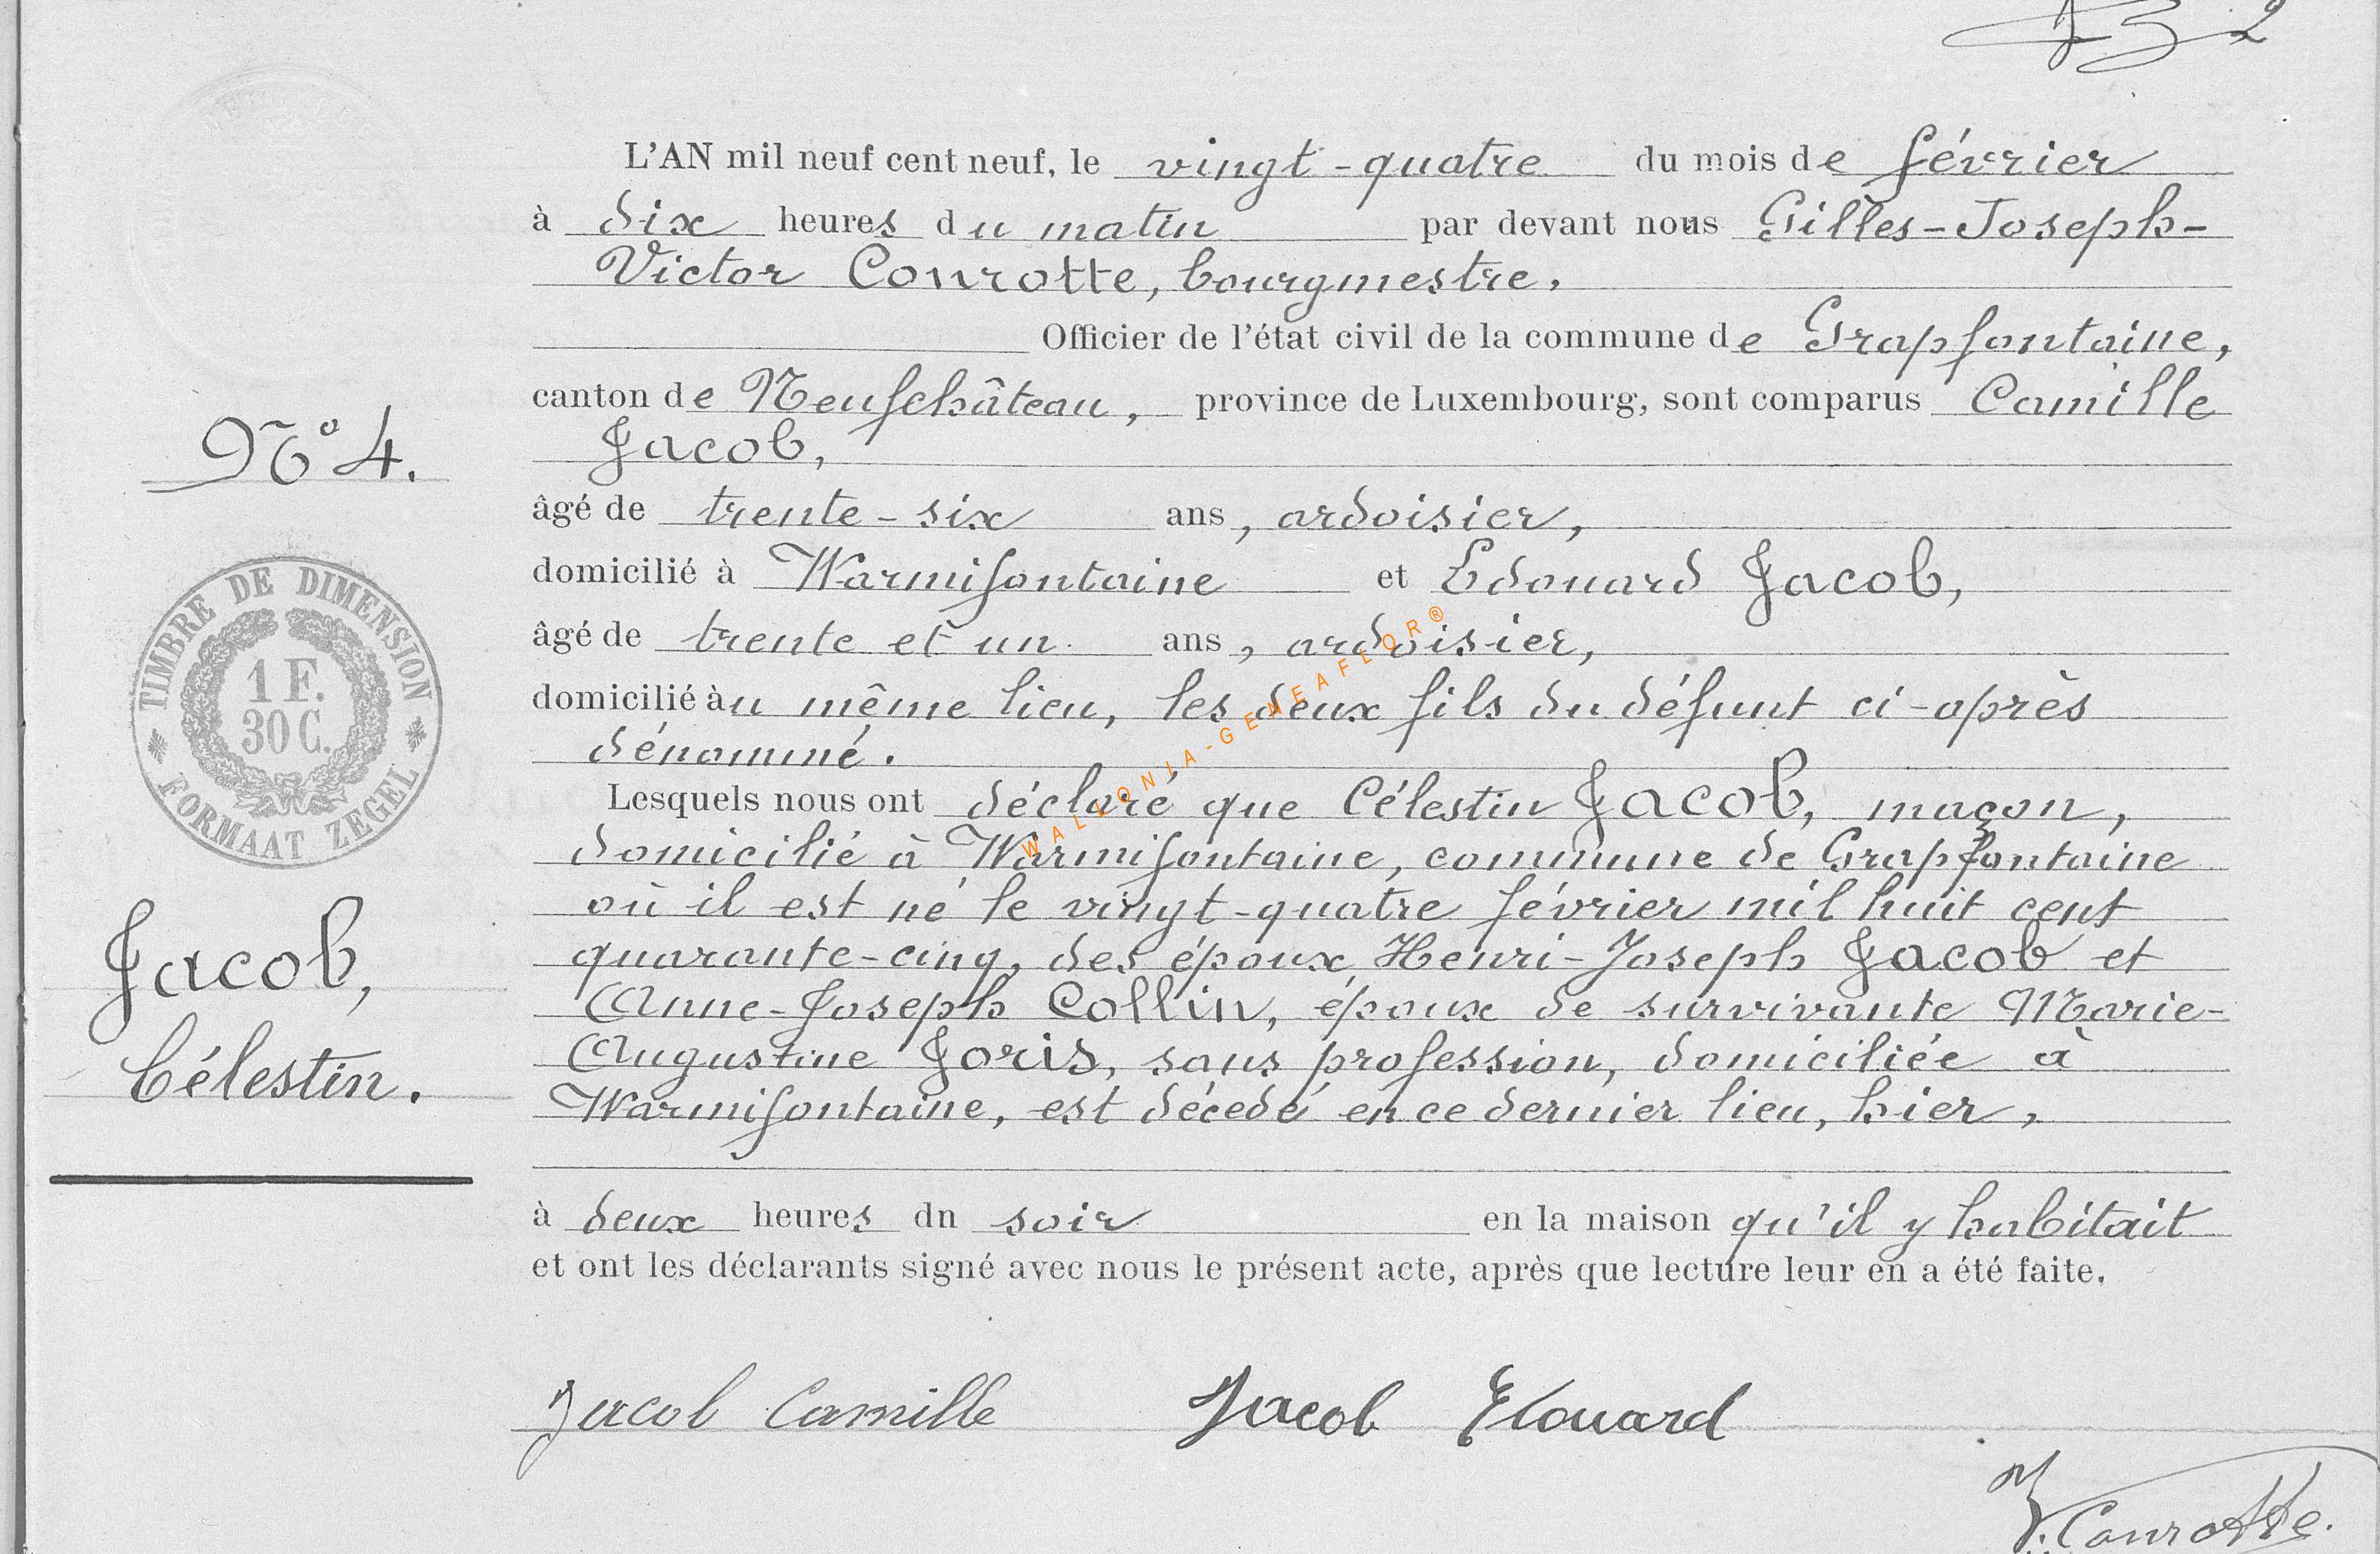 2
L'AN mil neuf cent neuf, le vingt-quatre du mois de février
à dix heures du matin par devant nous Gilles-Joseph-
Victor Conrotte, bourgmestre,
Officier de l'état civil de la commune de Grapfontaine,
canton de Neufchâteau, province de Luxembourg, sont comparus Camille
Jacob,
N° 4.
âgé de trente-six ans, ardoisier,
domicilié à Warmifontaine et Edouard Jacob,
âgé de trente et un ans, ardoisier,
domicilié àu même lieu, les deux fils du défunt ci-après
dénommé.
TIMBRE DE DIMENSION
1 F.
30 C.
FORMAAT ZEGEL
WALLONIA-GENEAFLOR®
Lesquels nous ont déclaré que Célestin Jacob, maçon,
domicilié à Warmifontaine, commune de Grapfontaine
où il est né le vingt-quatre février mil huit cent
quarante-cinq, des époux Henri-Joseph Jacob et
Anne-Joseph Collin, époux de survivante Marie-
Augustine Joris, sans profession, domiciliée à
Warmifontaine, est décédé en ce dernier lieu, hier,
Jacob,
Célestin.
à deux heures du soir en la maison qu'il y habitait
et ont les déclarants signé avec nous le présent acte, après que lecture leur en a été faite.
Jacob Camille Jacob Edouard
V. Conrotte.